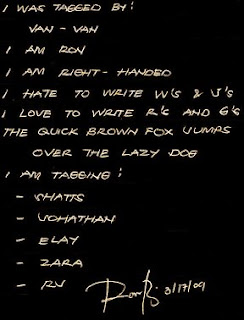 I WAS TAGGED BY:
VAN - VAN
I AM RON
I AM RIGHT-HANDED
I HATE TO WRITE W'S & J'S
I LOVE TO WRITE R'S AND G'S
THE QUICK BROWN FOX JUMPS
OVER THE LAZY DOG
I AM TAGGING:
- SHATTS
- JOHATHAN
- ELAY
- ZARA
- RJ
3/17/09